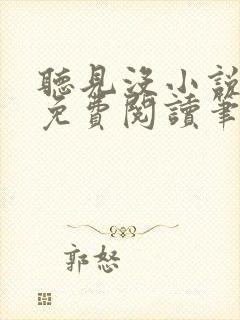 聽見沒小說
免費閱讀筆
郭怒